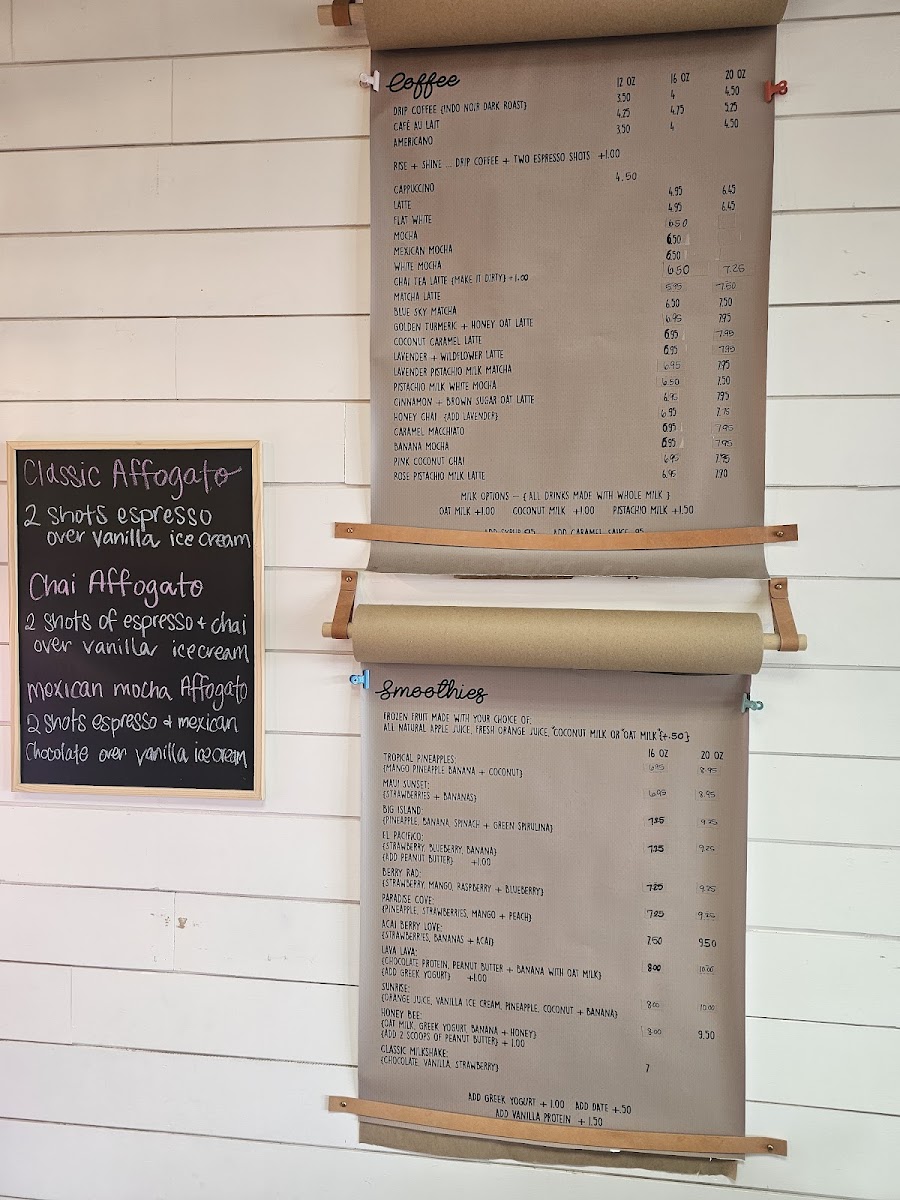 Coffee 12 OZ 16 OZ 20 OZ
DRIP COFFEE {INDO NOIR DARK ROAST} 3.50 4 4.50
CAFÉ AU LAIT 4.25 4.75 5.25
AMERICANO 3.50 4 4.50
RISE + SHINE ... DRIP COFFEE + TWO ESPRESSO SHOTS +1.00
CAPPUCCINO 4.50
LATTE 4.95 6.45
FLAT WHITE 4.95 6.45
MOCHA 6.50
MEXICAN MOCHA 6.50
WHITE MOCHA 6.50
CHAI TEA LATTE {MAKE IT DIRTY} +1.00 6.50 7.25
MATCHA LATTE 5.95 7.50
BLUE SKY MATCHA 6.50 7.50
GOLDEN TURMERIC + HONEY OAT LATTE 6.95 7.95
COCONUT CARAMEL LATTE 6.95 7.95
LAVENDER + WILDFLOWER LATTE 6.95 7.95
LAVENDER PISTACHIO MILK MATCHA 6.95 7.95
PISTACHIO MILK WHITE MOCHA 6.50 7.50
CINNAMON + BROWN SUGAR OAT LATTE 6.95 7.95
HONEY CHAI {ADD LAVENDER} 6.95 7.75
CARAMEL MACCHIATO 6.95 7.95
BANANA MOCHA 6.95 7.95
PINK COCONUT CHAI 6.95 7.95
ROSE PISTACHIO MILK LATTE 6.95 7.90
MILK OPTIONS – {ALL DRINKS MADE WITH WHOLE MILK}
OAT MILK +1.00 COCONUT MILK +1.00 PISTACHIO MILK +1.50
ADD SYRUP .95 ADD CARAMEL SAUCE .95
Classic Affogato
2 shots espresso
over vanilla ice cream
Chai Affogato
2 shots of espresso + chai
over vanilla ice cream
mexican mocha Affogato
2 shots espresso + mexican
Chocolate over vanilla ice cream
Smoothies
FROZEN FRUIT MADE WITH YOUR CHOICE OF:
ALL NATURAL APPLE JUICE, FRESH ORANGE JUICE, *COCONUT MILK OR *OAT MILK *{+.50}
16 OZ 20 OZ
TROPICAL PINEAPPLES:
{MANGO PINEAPPLE BANANA + COCONUT} 6.95 8.95
MAUI SUNSET:
{STRAWBERRIES + BANANAS} 6.95 8.95
BIG ISLAND:
{PINEAPPLE, BANANA, SPINACH + GREEN SPIRULINA} 7.25 9.25
EL PACIFICO:
{STRAWBERRY, BLUEBERRY, BANANA} 7.25 9.25
{ADD PEANUT BUTTER} +1.00
BERRY RAD:
{STRAWBERRY, MANGO, RASPBERRY + BLUEBERRY} 7.25 9.25
PARADISE COVE:
{PINEAPPLE, STRAWBERRIES, MANGO + PEACH} 7.25 9.25
ACAI BERRY LOVE:
{STRAWBERRIES, BANANAS + ACAI} 7.50 9.50
LAVA LAVA:
{CHOCOLATE PROTEIN, PEANUT BUTTER + BANANA WITH OAT MILK} 8.00 10.00
{ADD GREEK YOGURT} +1.00
SUNRISE:
{ORANGE JUICE, VANILLA ICE CREAM, PINEAPPLE, COCONUT + BANANA} 8.00 10.00
HONEY BEE:
{OAT MILK, GREEK YOGURT, BANANA + HONEY} 8.00 9.50
{ADD 2 SCOOPS OF PEANUT BUTTER} + 1.00
CLASSIC MILKSHAKE:
{CHOCOLATE, VANILLA, STRAWBERRY} 7
ADD GREEK YOGURT + 1.00 ADD DATE +.50
ADD VANILLA PROTEIN + 1.50